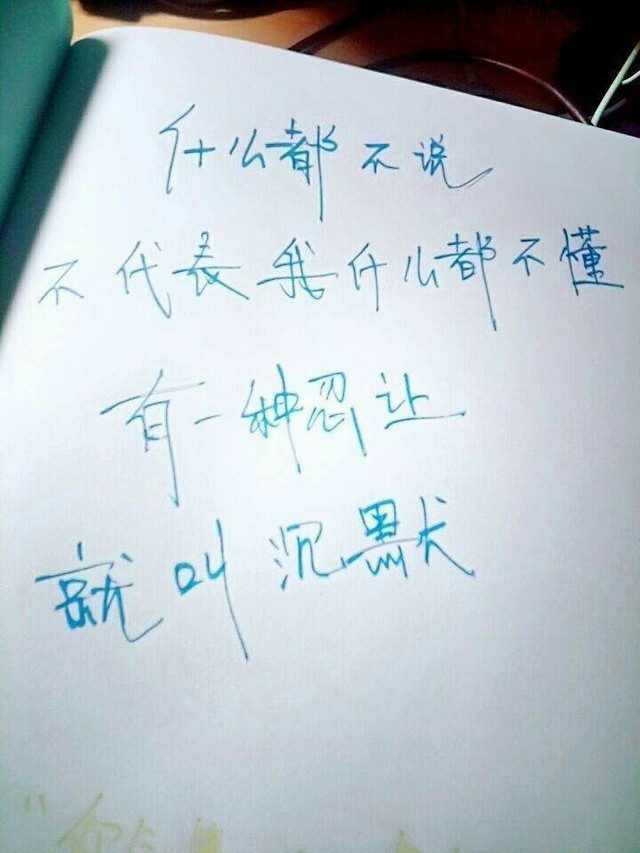 什么都不说
不代表我什么都不懂
有一种忍让
就叫沉默